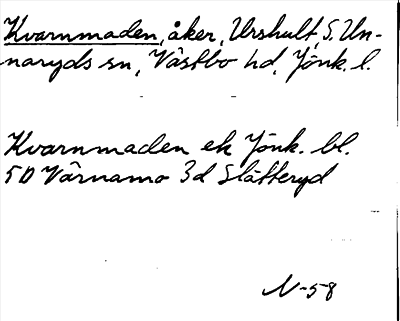 Kvarnmaden, åker, Urshult, S. Un-
naryds sn, Västbo hd, Jönk. l.
Kvarnmaden ek Jönk. bl.
5D Värnamo 3d Slätteryd
N-58